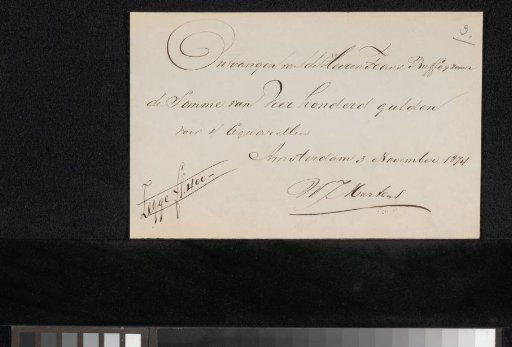 3.
Ontvangen van de Heeren Frans Buffa & Zonen
de Somme van Vier honderd gulden
voor 4 Aquarellen
Amsterdam 3 November 1874
Zegge f400-
W J Martens